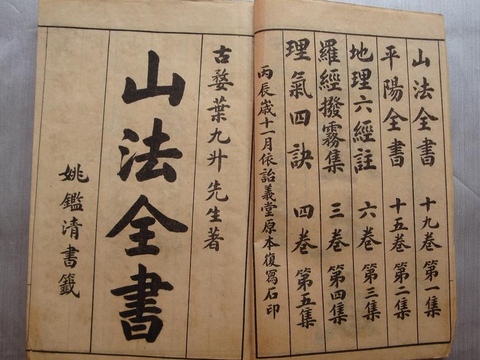 山法全書 十九卷 第一集
平陽全書 十五卷 第二集
地理六經註 六卷 第三集
羅經撥霧集 三卷 第四集
理氣四訣 四卷 第五集
丙辰歲十一月依詒義堂原本復寫石印
古婺葉九升先生著
山法全書
姚鑑清書籤